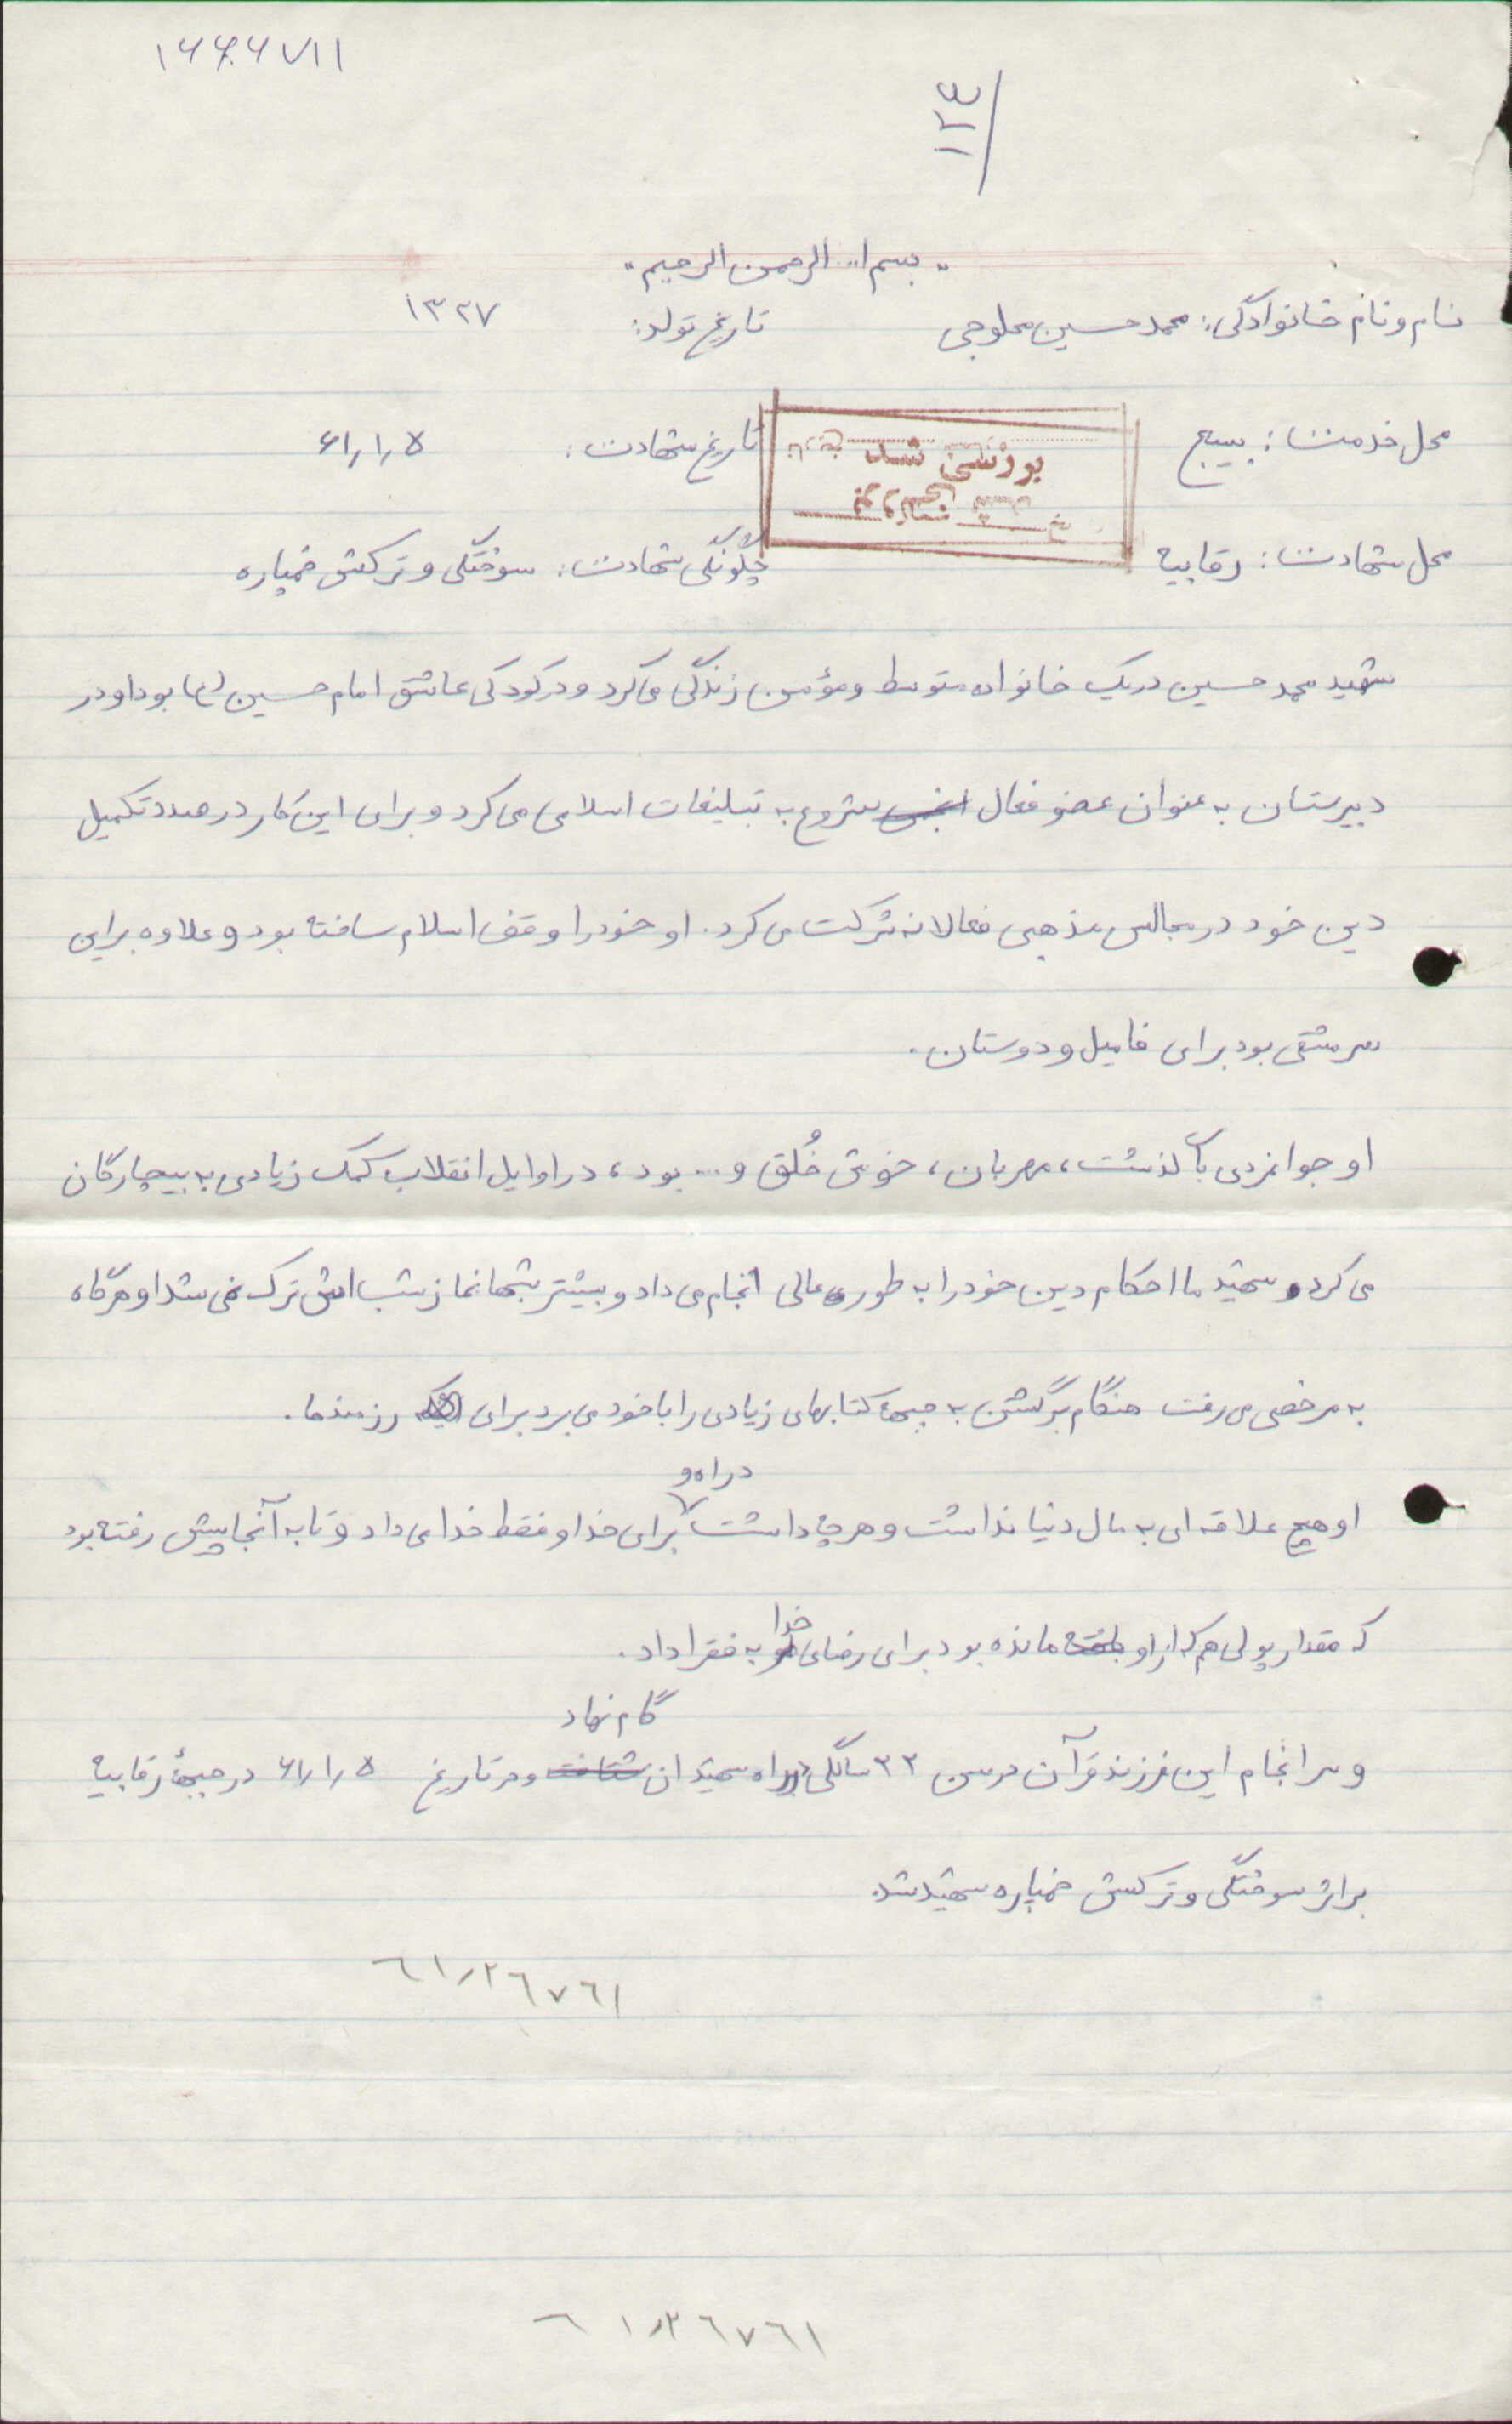 ۱۶۶۰۶۷۱۱
۱۲۴
" بسم ا... الرحمن الرحیم "
نام و نام خانوادگی: محمد حسین محلوجی تاریخ تولد: ۱۳۲۷
محل خدمت: بسیج تاریخ شهادت: ۶۱٫۱٫۵
بررسی شد
محل شهادت: رقابیه چگونگی شهادت: سوختگی و ترکش خمپاره
شهید محمد حسین در یک خانواده متوسط و مؤمن زندگی می کرد و در کودکی عاشق امام حسین (ع) بود او در
دبیرستان به عنوان عضو فعال شروع به تبلیغات اسلامی می کرد و برای این کار در صدد تکمیل
دین خود در مجالس مذهبی فعالانه شرکت می کرد. او خود را وقف اسلام ساخته بود و علاوه بر این
سرمشقی بود برای فامیل و دوستان.
او جوانمردی با گذشت، مهربان، خوش خُلق و... بود، در اوایل انقلاب کمک زیادی به بیچارگان
می کرد و شهید ما احکام دین خود را به طور عالی انجام می داد و بیشتر شبها نماز شب اش ترک نمی شد او هرگاه
به مرخصی می رفت هنگام برگشتن به جبهه کتابهای زیادی را با خود می برد برای رزمنده ها.
او هیچ علاقه ای به مال دنیا نداشت و هر چه داشت در راه و برای خدا و فقط خدا می داد و تا به آنجا پیش رفته بود
که مقدار پولی هم که از او مانده بود برای رضای خدا به فقرا داد.
و سرانجام این فرزند قرآن در سن ۳۲ سالگی در راه شهیدان گام نهاد و در تاریخ ۶۱٫۱٫۵ در جبههٔ رقابیه
بر اثر سوختگی و ترکش خمپاره شهید شد.
٦١٫٢٦٧٦١
٦١٫٢٦٧٦١